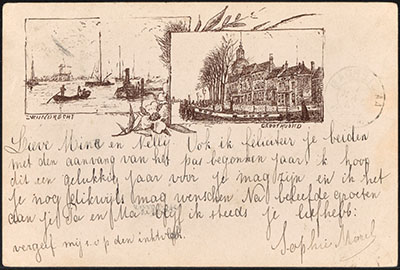 ZWIJNDRECHT
GROOTHOOFD
Lieve Mina en Nelly Ook ik feliciteer je beiden
met den aanvang van het pas begonnen jaar, ik hoop
dit een gelukkig jaar voor je mag zijn en ik het
je nog dikwijls mag wenschen Na beleefde groeten
aan je Pa en Ma blijf ik steeds je liefhebb:
vergeef mij s.v.p den inktvlak.
Sophie